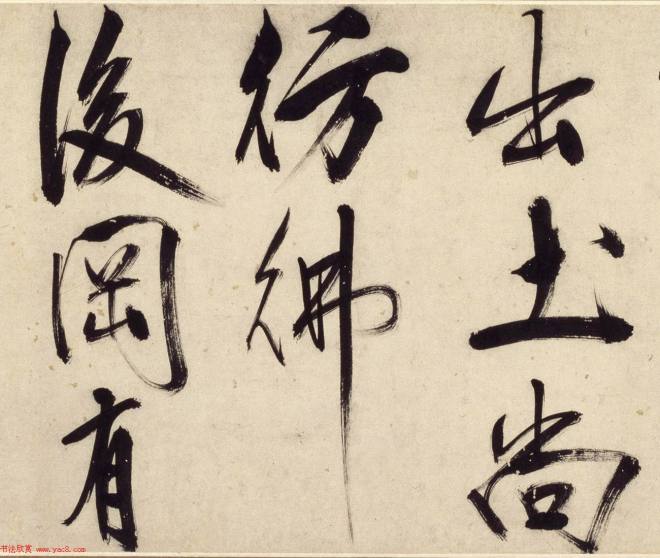 出土尚
彷彿
後岡有
书法欣赏 www.yac8.com